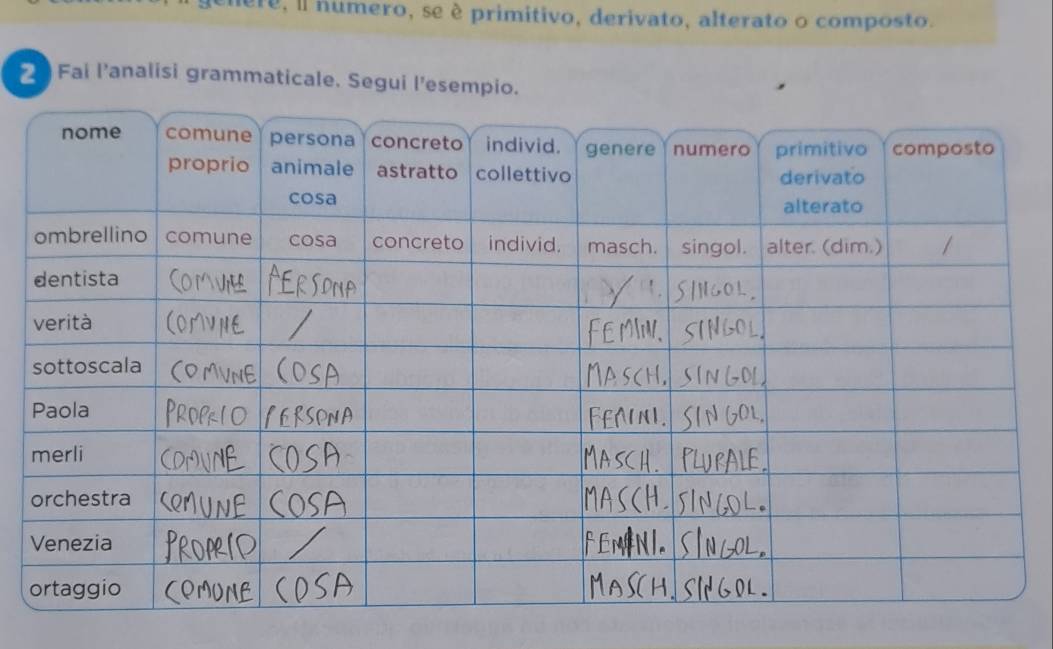 il numero, se è primitivo, derivato, alterato o composto.
2 Fai l'analisi grammaticale. Segui l'esempio.
nome comune persona concreto individ. genere numero primitivo composto
proprio animale astratto collettivo derivato
cosa alterato
ombrellino comune cosa concreto individ. masch. singol. alter. (dim.) /
dentista COMUNE PERSONA SINGOL.
verità COMUNE / FEMIN. SINGOL.
sottoscala COMUNE COSA MASCH. SINGOL
Paola PROPRIO PERSONA FEMINI. SINGOL.
merli COMUNE COSA MASCH. PLURALE.
orchestra COMUNE COSA MASCH. SINGOL.
Venezia PROPRIO / FEMINI. SINGOL.
ortaggio COMUNE COSA MASCH. SINGOL.